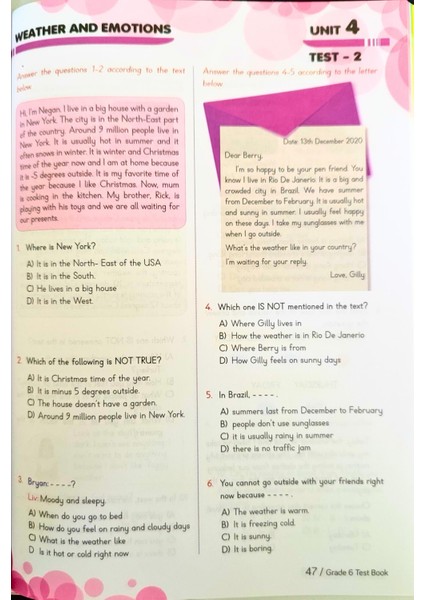 WEATHER AND EMOTIONS
UNIT 4
TEST - 2
Answer the questions 1-2 according to the text
below.
Hi, I'm Negan. I live in a big house with a garden
in New York. The city is in the North-East part
of the country. Around 9 million people live in
New York. It is usually hot in summer and it
often snows in winter. It is winter and Christmas
time of the year now and I am at home because
it is -5 degrees outside. It is my favorite time of
the year because I like Christmas. Now, mum
is cooking in the kitchen. My brother, Rick, is
playing with his toys and we are all waiting for
our presents.
1. Where is New York?
A) It is in the North- East of the USA
B) It is in the South.
C) He lives in a big house
D) It is in the West.
2. Which of the following is NOT TRUE?
A) It is Christmas time of the year.
B) It is minus 5 degrees outside.
C) The house doesn't have a garden.
D) Around 9 million people live in New York.
3. Bryan: - - - -?
Liv: Moody and sleepy.
A) When do you go to bed
B) How do you feel on rainy and cloudy days
C) What is the weather like
D Is it hot or cold right now
Answer the questions 4-5 according to the letter
below.
Date: 13th December 2020
Dear Berry,
I'm so happy to be your pen friend. You
know I live in Rio De Janerio. It is a big and
crowded city in Brazil. We have summer
from December to February. It is usually hot
and sunny in summer. I usually feel happy
on these days. I take my sunglasses with me
when I go outside.
What's the weather like in your country?
I'm waiting for your reply.
Love, Gilly
4. Which one IS NOT mentioned in the text?
A) Where Gilly lives in
B) How the weather is in Rio De Janerio
C) Where Berry is from
D) How Gilly feels on sunny days
5. In Brazil, - - - - .
A) summers last from December to February
B) people don't use sunglasses
C) it is usually rainy in summer
D) there is no traffic jam
6. You cannot go outside with your friends right
now because - - - - .
A) The weather is warm.
B) It is freezing cold.
C) It is sunny.
D) It is boring.
47 / Grade 6 Test Book